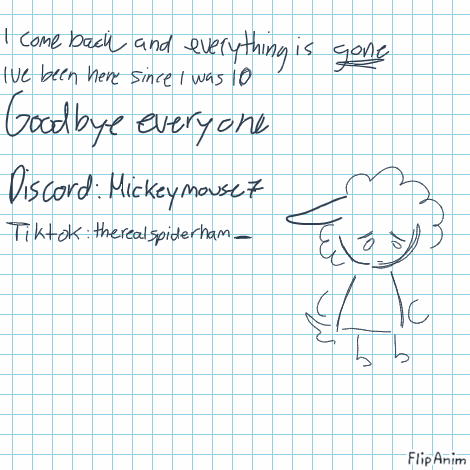 I come back and everything is gone
Ive been here since I was 10
Goodbye everyone
Discord: Mickeymouse7
Tiktok: therealspiderham_
FlipAnim